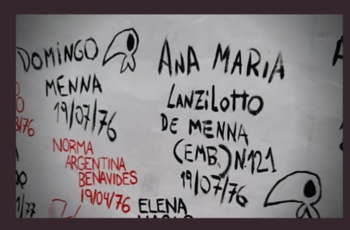 DOMINGO
MENNA
19/07/76
ANA MARIA
LANZILOTTO
DE MENNA
(EMB.) N°121
19/07/76
NORMA
ARGENTINA
BENAVIDES
19/04/76
ELENA